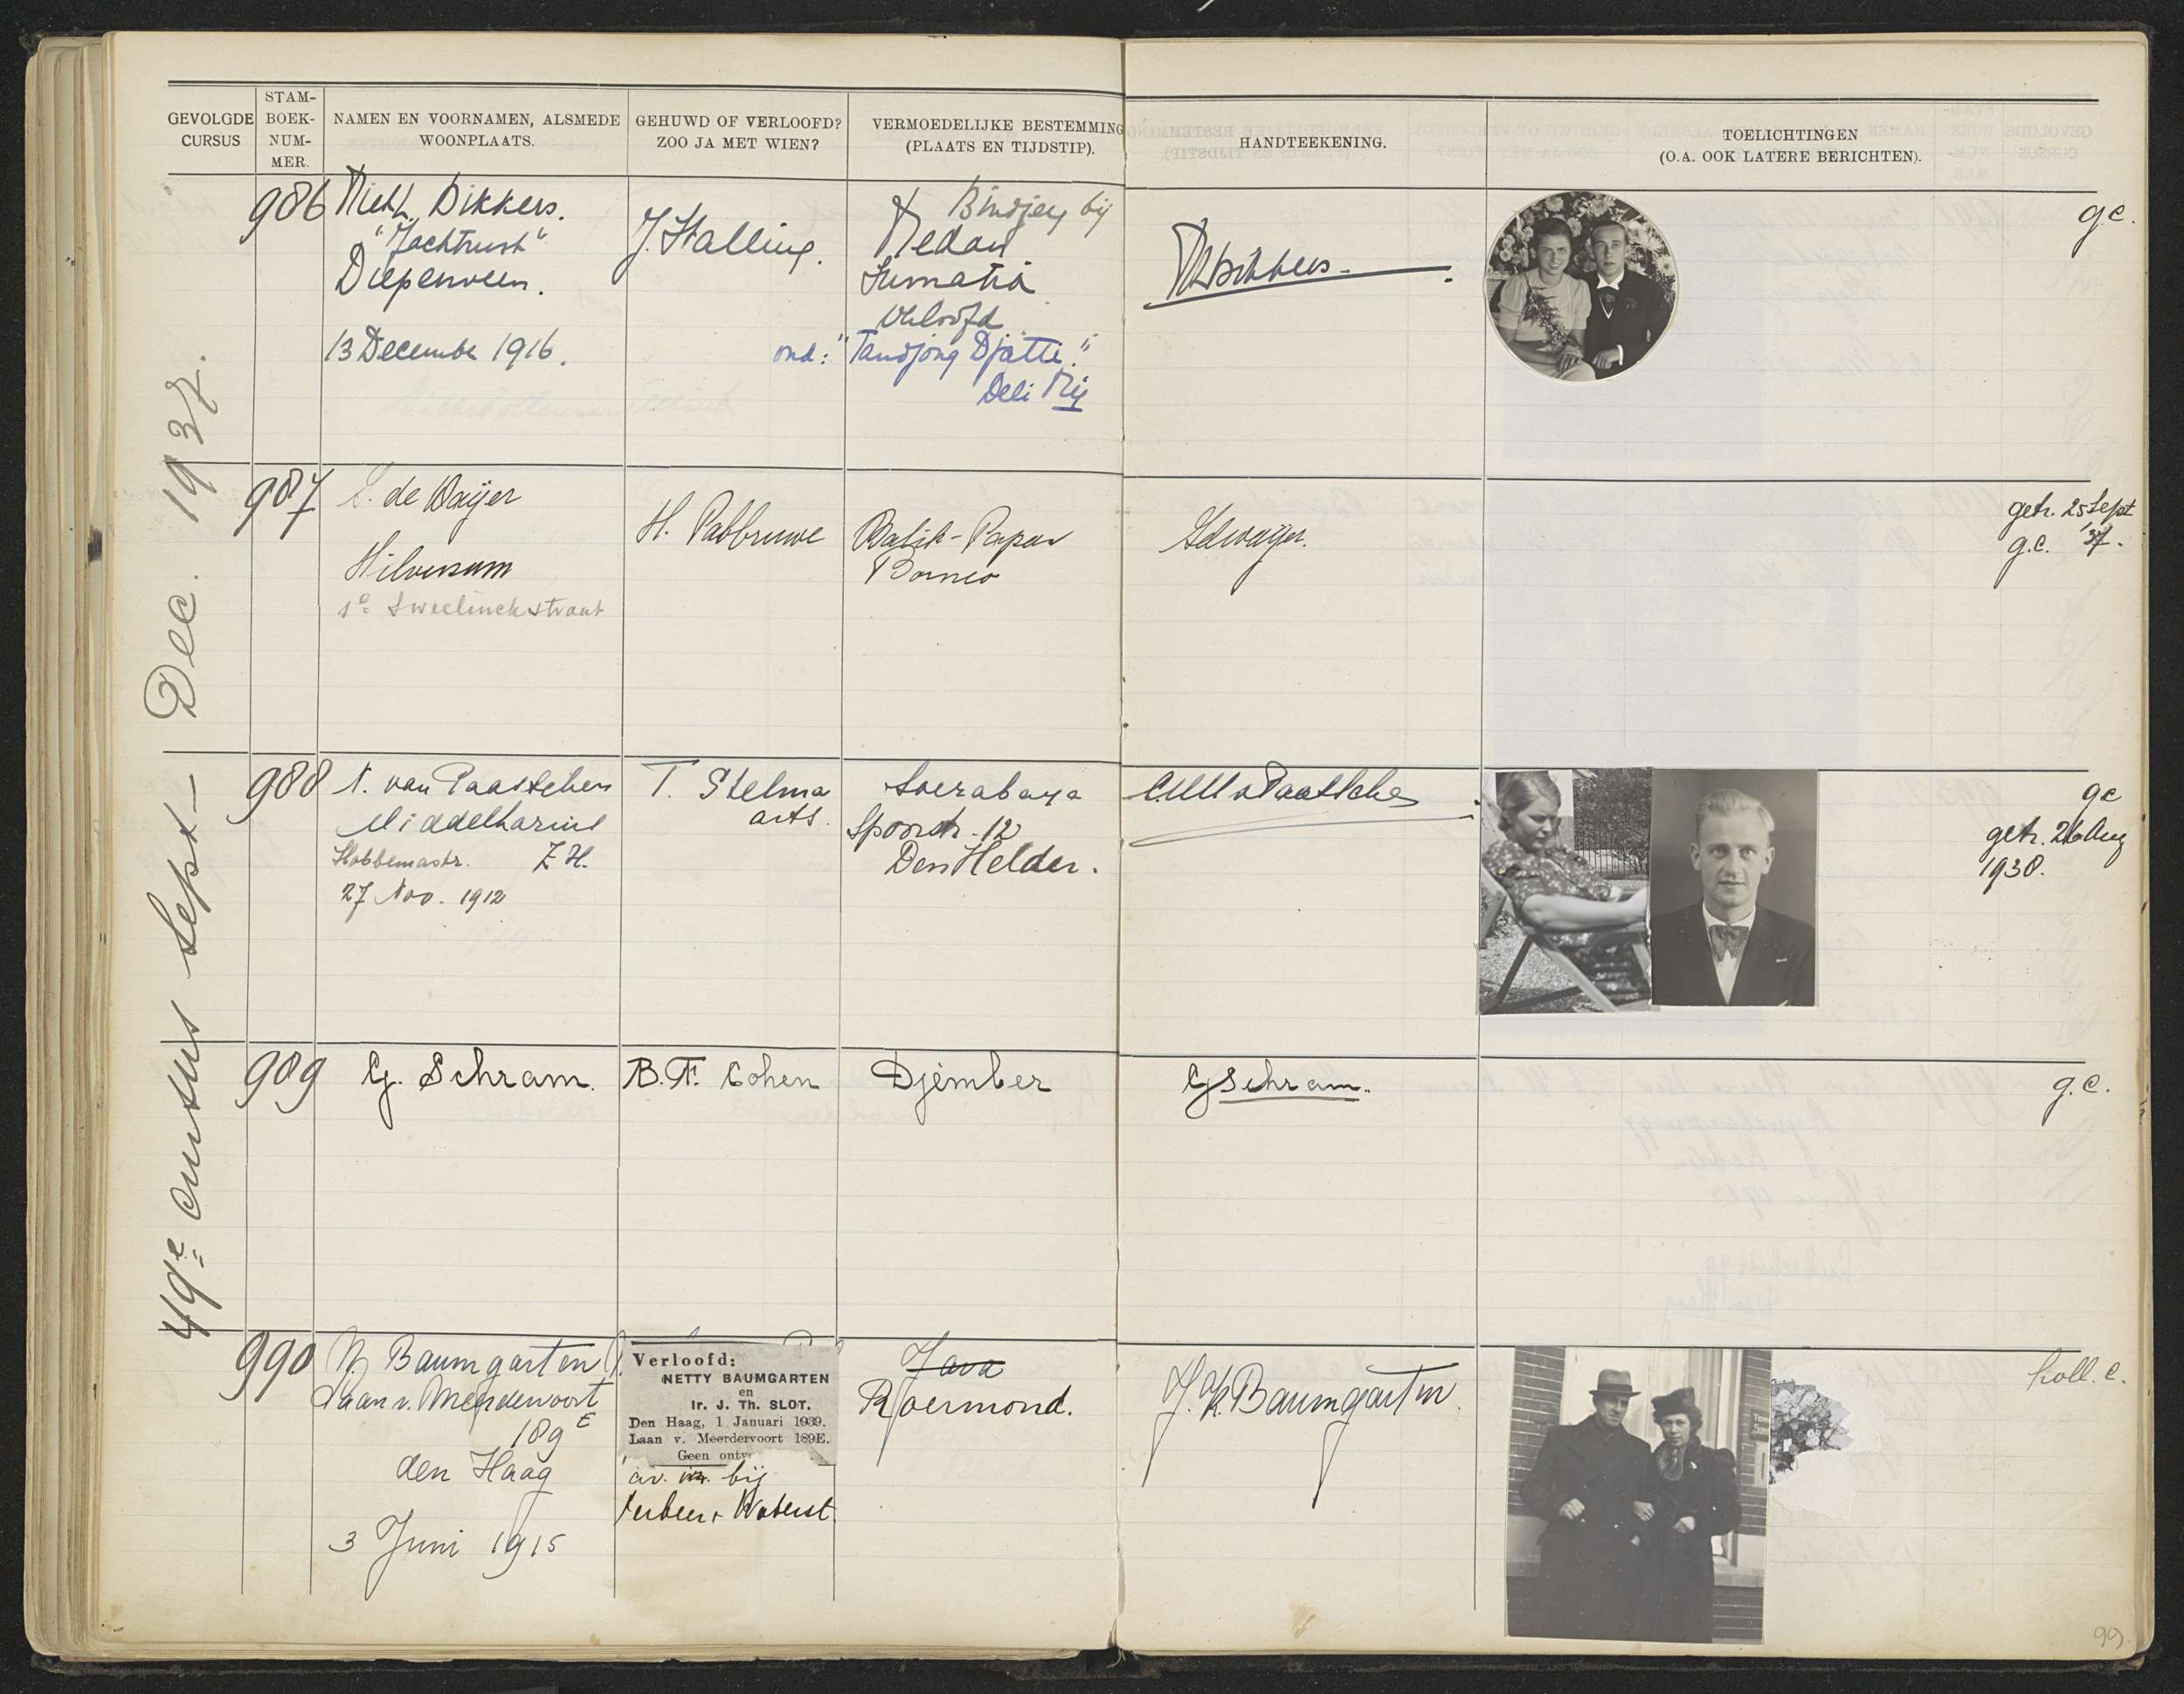 GEVOLGDE CURSUS
STAM-BOEK-NUM-MER.
NAMEN EN VOORNAMEN, ALSMEDE WOONPLAATS.
GEHUWD OF VERLOOFD? ZOO JA MET WIEN?
VERMOEDELIJKE BESTEMMING (PLAATS EN TIJDSTIP).
HANDTEEKENING.
TOELICHTINGEN (O.A. OOK LATERE BERICHTEN).
49e cursus Sept – Dec. 1937.
986
Dikkers.
"Jachtrust"
Diepenveen.
13 December 1916.
J. Stalling.
Bindjey bij
Medan
Sumatra
verloofd
ond: "Tandjong Djatti"
Deli Mij
g.c.
987
de Waijer
Hilversum
1e Sweelinckstraat
H. Pabbruwe
Balik-Papan
Borneo
Sdwaijer.
getr. 25 Sept
g.c. '37.
988
N. van Paasschen
Middelharnis
Hobbemastr. Z.H.
27 Nov. 1912
T. Stelma
arts.
Soerabaya
Spoorstr. 12
Den Helder.
v Paasschen
gc
getr. 26 Aug
1938.
989
G. Schram.
B.F. Cohen
Djember
GSchram.
g.c.
990
N. Baumgarten
Laan v. Meerdervoort
189E
den Haag
3 Juni 1915
Verloofd:
NETTY BAUMGARTEN
en
Ir. J. Th. SLOT.
Den Haag, 1 Januari 1939.
Laan v. Meerdervoort 189E.
Geen ontv
bij
Verkeer + Waterst.
Java
Roermond.
Baumgarten.
holl. c.
99.